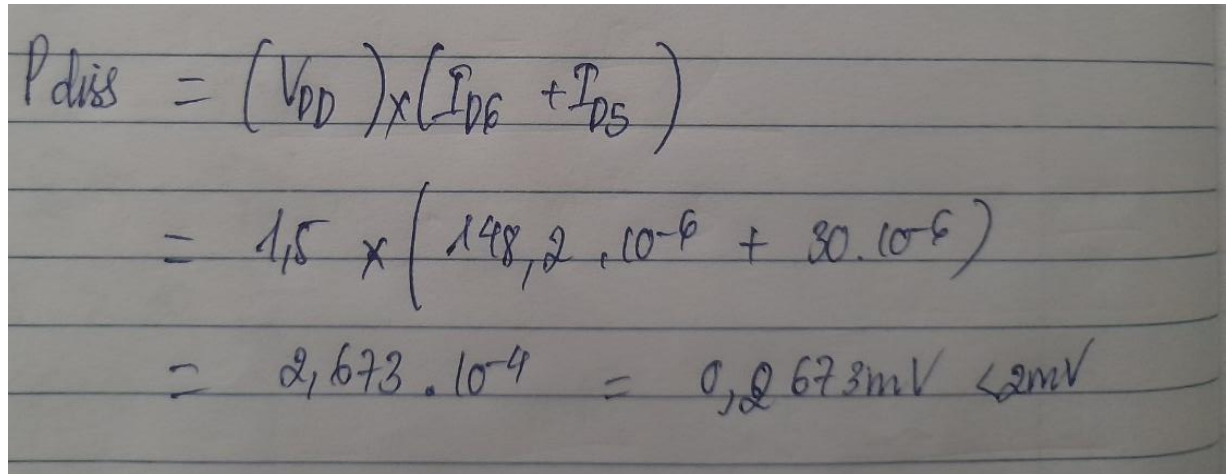 Pdiss = (VDD)x(ID6 + ID5)
= 1,5 x (148,2 . 10-6 + 30.10-6)
= 2,673 . 10-4 = 0,2673mV <2mV